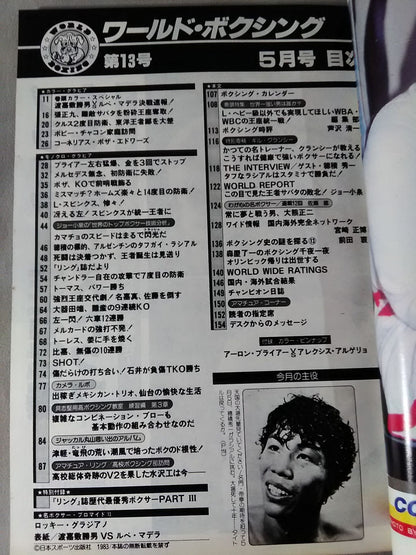 ワールド・ボクシング
WORLD
BOXING
第13号
5月号 目次
■カラー・グラビア
11 巻頭カラー・スペシャル
渡嘉敷勝男VSルペ・マデラ決戦速報!
16 張正九、難敵サパタを粉砕王座奪取!
20 クルス2度目防衛、東洋王者郷を大差
23 ボビー・チャコン家庭訪問
26 コーネリアス・ボザ・エドワーズ
■モノクロ・グラビア
28 プライアー左右猛爆、金を3回でストップ
32 メルセデス無念、初防衛に失敗!
35 ボザ、KOで前哨戦飾る
36 ミスマッチ?ホームズ楽々と14度目の防衛!
38 L・スピンクス、惨々!
40 冴える左!スピンクスが統一王者に
44 ジョー小泉の「世界のトップボクサー技術分析」
カマチョのスピードはまるで閃光だ
46 穂積の標的、アルゼンチンのタフガイ・ラシアル
49 死闘は決着つかず、王者誕生は見送り
52 「リング」誌だより
54 チャンドラー自在の攻撃で7度目の防衛
57 トーマス、パワー勝ち
60 強烈王座交代劇!名嘉真、佐藤を倒す
64 大器田端、難童の9連続KO
66 左一閃!六車12連勝
67 メルカードの強打不発!
68 トーレス、妻に手を焼く
72 比嘉、無傷の10連勝
73 SHOT!
74 傷だらけの打ち合い!石井が負傷TKO勝ち
77 カメラ・ルポ
出稼ぎメキシカン・トリオ、仙台の愉快な生活
80 具志堅用高ボクシング教室 練習編 第3章
複雑なコンビネーション・ブローも
基本動作の組み合わせなのだ
84 ジャッカル丸山思い出のアルバム
津軽・竜飛の荒い潮風で培ったボクのド根性!
87 アマチュア・リング/高校ボクシング部訪問
高校総体奇跡のV2を果した水沢工は今—
■特別付録■
「リング」誌歴代最優秀ボクサーPART III
■名ボクサー・ブロマイド13
ロッキー・グラジアノ
表紙/渡嘉敷勝男VSルペ・マデラ
©日本スポーツ出版社 1983/本誌の無断転載を禁ず
■本文
107 ボクシング・カレンダー
108 巻頭特集/世界一強い男は誰か!?
L・ヘビー級以外でも実現してほしいWBA・
WBCの王座統一戦!
115 ボクシング時評 芦沢清一
116 特別寄稿/ギル・クランシー
かつての名トレーナー、クランシーが教える
こうすれば健康で強いボクサーになれる!
118 THE INTERVIEW/ゲスト/穂積秀一
タフなラシアルはスタミナで勝負だ!
122 WORLD REPORT
この目で見た王者サパタの敗北/ジョー小泉
124 わが心の名ボクサー/連載12回 佐瀬稔
常に夢と戦う男、大熊正二
128 ワイド情報 国内海外完全ネットワーク
宮崎正博
136 ボクシング史の謎を探る⑪ 前田衷
138 森慶了一のボクシング千夜一夜
オリンピック帰りは出世する
140 WORLD WIDE RATINGS
146 国内・海外試合結果
149 チャンピオン日誌
150 アマチュア・コーナー
152 読者の指定席
154 デスクからのメッセージ
■付録/カラー・ピンナップ
アーロン・プライアーVSアレクシス・アルゲリョ
今月の主役
CO